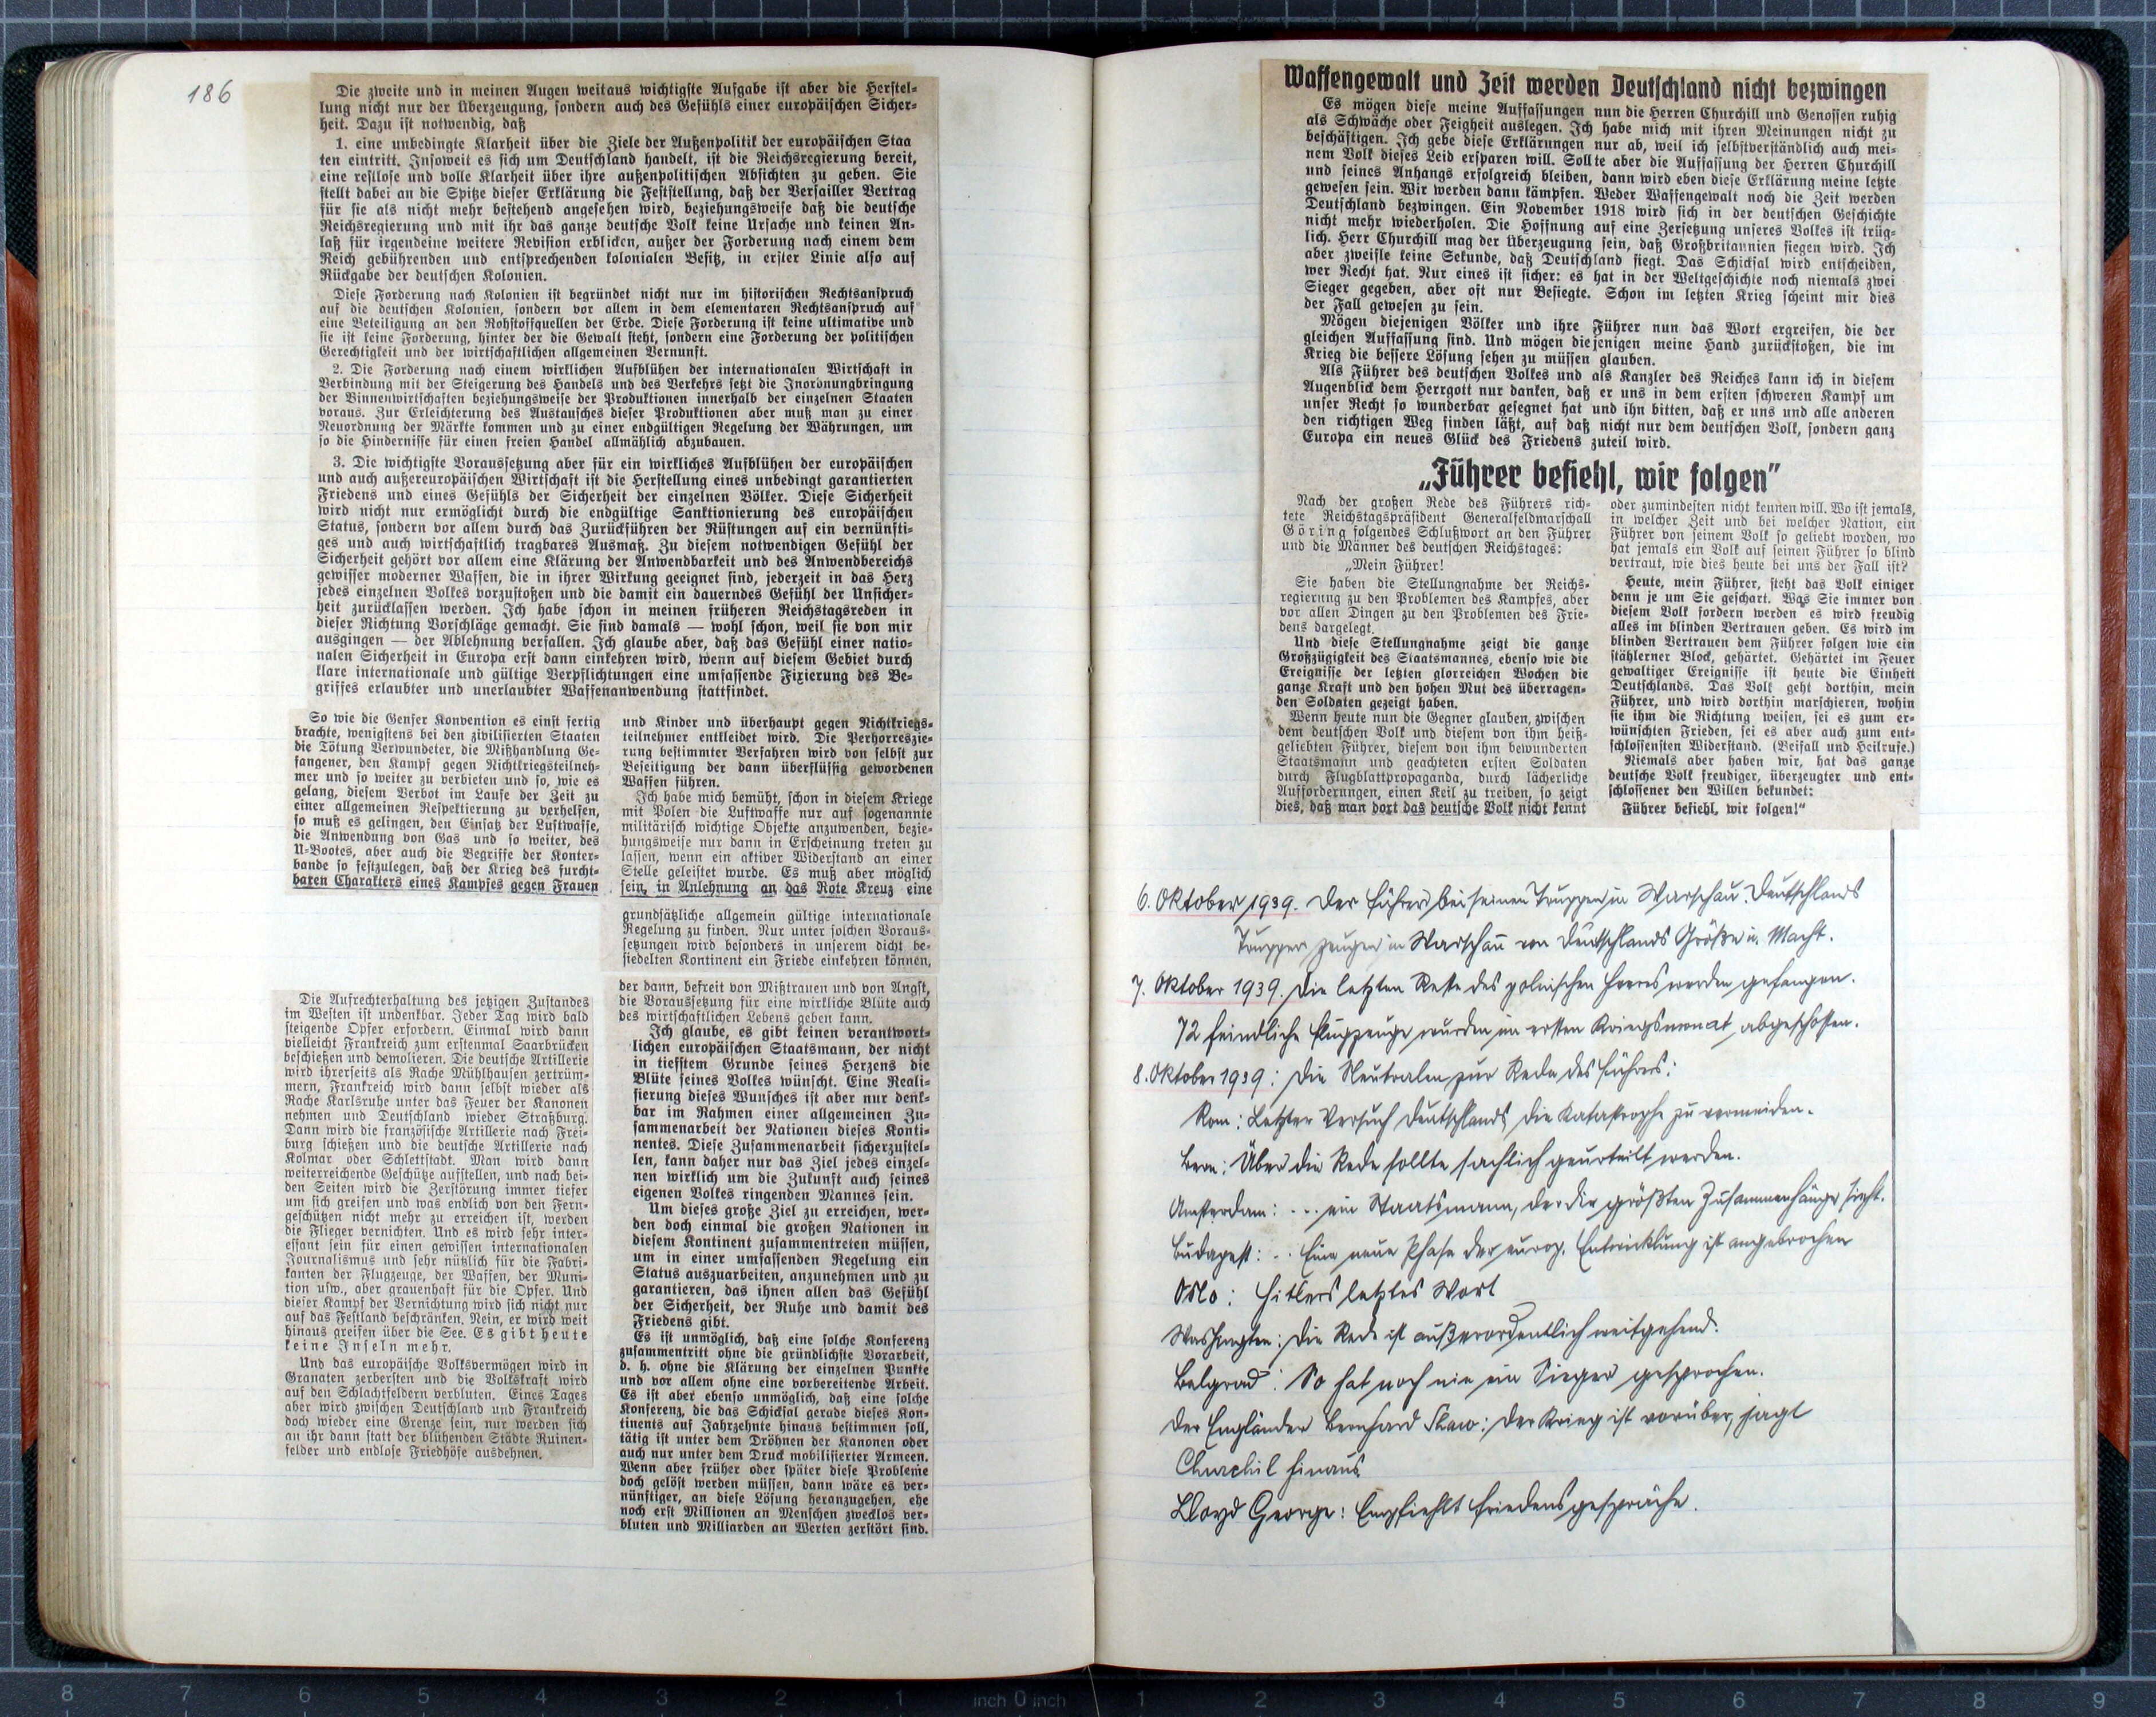 186
Die zweite und in meinen Augen weitaus wichtigste Aufgabe ist aber die Herstel-
lung nicht nur der Überzeugung, sondern auch des Gefühls einer europäischen Sicher-
heit. Dazu ist notwendig, daß
1. eine unbedingte Klarheit über die Ziele der Außenpolitik der europäischen Staa
ten eintritt. Insoweit es sich um Deutschland handelt, ist die Reichsregierung bereit,
eine restlose und volle Klarheit über ihre außenpolitischen Absichten zu geben. Sie
stellt dabei an die Spitze dieser Erklärung die Feststellung, daß der Versailler Vertrag
für sie als nicht mehr bestehend angesehen wird, beziehungsweise daß die deutsche
Reichsregierung und mit ihr das ganze deutsche Volk keine Ursache und keinen An-
laß für irgendeine weitere Revision erblicken, außer der Forderung nach einem dem
Reich gebührenden und entsprechenden kolonialen Besitz, in erster Linie also auf
Rückgabe der deutschen Kolonien.
Diese Forderung nach Kolonien ist begründet nicht nur im historischen Rechtsanspruch
auf die deutschen Kolonien, sondern vor allem in dem elementaren Rechtsanspruch auf
eine Beteiligung an den Rohstoffquellen der Erde. Diese Forderung ist keine ultimative und
sie ist keine Forderung, hinter der die Gewalt steht, sondern eine Forderung der politischen
Gerechtigkeit und der wirtschaftlichen allgemeinen Vernunft.
2. Die Forderung nach einem wirklichen Aufblühen der internationalen Wirtschaft in
Verbindung mit der Steigerung des Handels und des Verkehrs setzt die Inordnungbringung
der Binnenwirtschaften beziehungsweise der Produktionen innerhalb der einzelnen Staaten
voraus. Zur Erleichterung des Austausches dieser Produktionen aber muß man zu einer
Neuordnung der Märkte kommen und zu einer endgültigen Regelung der Währungen, um
so die Hindernisse für einen freien Handel allmählich abzubauen.
3. Die wichtigste Voraussetzung aber für ein wirkliches Aufblühen der europäischen
und auch außereuropäischen Wirtschaft ist die Herstellung eines unbedingt garantierten
Friedens und eines Gefühls der Sicherheit der einzelnen Völker. Diese Sicherheit
wird nicht nur ermöglicht durch die endgültige Sanktionierung des europäischen
Status, sondern vor allem durch das Zurückführen der Rüstungen auf ein vernünfti-
ges und auch wirtschaftlich tragbares Ausmaß. Zu diesem notwendigen Gefühl der
Sicherheit gehört vor allem eine Klärung der Anwendbarkeit und des Anwendbereichs
gewisser moderner Waffen, die in ihrer Wirkung geeignet sind, jederzeit in das Herz
jedes einzelnen Volkes vorzustoßen und die damit ein dauerndes Gefühl der Unsicher-
heit zurücklassen werden. Ich habe schon in meinen früheren Reichstagsreden in
dieser Richtung Vorschläge gemacht. Sie sind damals — wohl schon, weil sie von mir
ausgingen — der Ablehnung verfallen. Ich glaube aber, daß das Gefühl einer natio-
nalen Sicherheit in Europa erst dann einkehren wird, wenn auf diesem Gebiet durch
klare internationale und gültige Verpflichtungen eine umfassende Fixierung des Be-
griffes erlaubter und unerlaubter Waffenanwendung stattfindet.
So wie die Genfer Konvention es einst fertig
brachte, wenigstens bei den zivilisierten Staaten
die Tötung Verwundeter, die Mißhandlung Ge-
fangener, den Kampf gegen Nichtkriegsteilneh-
mer und so weiter zu verbieten und so, wie es
gelang, diesem Verbot im Laufe der Zeit zu
einer allgemeinen Respektierung zu verhelfen,
so muß es gelingen, den Einsatz der Luftwaffe,
die Anwendung von Gas und so weiter, des
U-Bootes, aber auch die Begriffe der Konter-
bande so festzulegen, daß der Krieg des furcht-
baren Charakters eines Kampfes gegen Frauen
und Kinder und überhaupt gegen Nichtkriegs-
teilnehmer entkleidet wird. Die Perhorreszie-
rung bestimmter Verfahren wird von selbst zur
Beseitigung der dann überflüssig gewordenen
Waffen führen.
Ich habe mich bemüht, schon in diesem Kriege
mit Polen die Luftwaffe nur auf sogenannte
militärisch wichtige Objekte anzuwenden, bezie-
hungsweise nur dann in Erscheinung treten zu
lassen, wenn ein aktiver Widerstand an einer
Stelle geleistet wurde. Es muß aber möglich
sein, in Anlehnung an das Rote Kreuz eine
grundsätzliche allgemein gültige internationale
Regelung zu finden. Nur unter solchen Voraus-
setzungen wird besonders in unserem dicht be-
siedelten Kontinent ein Friede einkehren können,
der dann, befreit von Mißtrauen und von Angst,
die Voraussetzung für eine wirkliche Blüte auch
des wirtschaftlichen Lebens geben kann.
Ich glaube, es gibt keinen verantwort-
lichen europäischen Staatsmann, der nicht
in tiefstem Grunde seines Herzens die
Blüte seines Volkes wünscht. Eine Reali-
sierung dieses Wunsches ist aber nur denk-
bar im Rahmen einer allgemeinen Zu-
sammenarbeit der Nationen dieses Konti-
nentes. Diese Zusammenarbeit sicherzustel-
len, kann daher nur das Ziel jedes einzel-
nen wirklich um die Zukunft auch seines
eigenen Volkes ringenden Mannes sein.
Um dieses große Ziel zu erreichen, wer-
den doch einmal die großen Nationen in
diesem Kontinent zusammentreten müssen,
um in einer umfassenden Regelung ein
Status auszuarbeiten, anzunehmen und zu
garantieren, das ihnen allen das Gefühl
der Sicherheit, der Ruhe und damit des
Friedens gibt.
Es ist unmöglich, daß eine solche Konferenz
zusammentritt ohne die gründlichste Vorarbeit,
d. h. ohne die Klärung der einzelnen Punkte
und vor allem ohne eine vorbereitende Arbeit.
Es ist aber ebenso unmöglich, daß eine solche
Konferenz, die das Schicksal gerade dieses Kon-
tinents auf Jahrzehnte hinaus bestimmen soll,
tätig ist unter dem Dröhnen der Kanonen oder
auch nur unter dem Druck mobilisierter Armeen.
Wenn aber früher oder später diese Probleme
doch gelöst werden müssen, dann wäre es ver-
nünftiger, an diese Lösung heranzugehen, ehe
noch erst Millionen an Menschen zwecklos ver-
bluten und Milliarden an Werten zerstört sind.
Die Aufrechterhaltung des jetzigen Zustandes
im Westen ist undenkbar. Jeder Tag wird bald
steigende Opfer erfordern. Einmal wird dann
vielleicht Frankreich zum erstenmal Saarbrücken
beschießen und demolieren. Die deutsche Artillerie
wird ihrerseits als Rache Mühlhausen zertrüm-
mern, Frankreich wird dann selbst wieder als
Rache Karlsruhe unter das Feuer der Kanonen
nehmen und Deutschland wieder Straßburg.
Dann wird die französische Artillerie nach Frei-
burg schießen und die deutsche Artillerie nach
Kolmar oder Schlettstadt. Man wird dann
weiterreichende Geschütze aufstellen, und nach bei-
den Seiten wird die Zerstörung immer tiefer
um sich greifen und was endlich von den Fern-
geschützen nicht mehr zu erreichen ist, werden
die Flieger vernichten. Und es wird sehr inter-
essant sein für einen gewissen internationalen
Journalismus und sehr nützlich für die Fabri-
kanten der Flugzeuge, der Waffen, der Muni-
tion usw., aber grauenhaft für die Opfer. Und
dieser Kampf der Vernichtung wird sich nicht nur
auf das Festland beschränken. Nein, er wird weit
hinaus greifen über die See. Es gibt heute
keine Inseln mehr.
Und das europäische Volksvermögen wird in
Granaten zerbersten und die Volkskraft wird
auf den Schlachtfeldern verbluten. Eines Tages
aber wird zwischen Deutschland und Frankreich
doch wieder eine Grenze sein, nur werden sich
an ihr dann statt der blühenden Städte Ruinen-
felder und endlose Friedhöfe ausdehnen.
Waffengewalt und Zeit werden Deutschland nicht bezwingen
Es mögen diese meine Auffassungen nun die Herren Churchill und Genossen ruhig
als Schwäche oder Feigheit auslegen. Ich habe mich mit ihren Meinungen nicht zu
beschäftigen. Ich gebe diese Erklärungen nur ab, weil ich selbstverständlich auch mei-
nem Volk dieses Leid ersparen will. Sollte aber die Auffassung der Herren Churchill
und seines Anhangs erfolgreich bleiben, dann wird eben diese Erklärung meine letzte
gewesen sein. Wir werden dann kämpfen. Weder Waffengewalt noch die Zeit werden
Deutschland bezwingen. Ein November 1918 wird sich in der deutschen Geschichte
nicht mehr wiederholen. Die Hoffnung auf eine Zersetzung unseres Volkes ist trüg-
lich. Herr Churchill mag der Überzeugung sein, daß Großbritannien siegen wird. Ich
aber zweifle keine Sekunde, daß Deutschland siegt. Das Schicksal wird entscheiden,
wer Recht hat. Nur eines ist sicher: es hat in der Weltgeschichte noch niemals zwei
Sieger gegeben, aber oft nur Besiegte. Schon im letzten Krieg scheint mir dies
der Fall gewesen zu sein.
Mögen diejenigen Völker und ihre Führer nun das Wort ergreifen, die der
gleichen Auffassung sind. Und mögen diejenigen meine Hand zurückstoßen, die im
Krieg die bessere Lösung sehen zu müssen glauben.
Als Führer des deutschen Volkes und als Kanzler des Reiches kann ich in diesem
Augenblick dem Herrgott nur danken, daß er uns in dem ersten schweren Kampf um
unser Recht so wunderbar gesegnet hat und ihn bitten, daß er uns und alle anderen
den richtigen Weg finden läßt, auf daß nicht nur dem deutschen Volk, sondern ganz
Europa ein neues Glück des Friedens zuteil wird.
„Führer befiehl, wir folgen"
Nach der großen Rede des Führers rich-
tete Reichstagspräsident Generalfeldmarschall
Göring folgendes Schlußwort an den Führer
und die Männer des deutschen Reichstages:
„Mein Führer!
Sie haben die Stellungnahme der Reichs-
regierung zu den Problemen des Kampfes, aber
vor allen Dingen zu den Problemen des Frie-
dens dargelegt.
Und diese Stellungnahme zeigt die ganze
Großzügigkeit des Staatsmannes, ebenso wie die
Ereignisse der letzten glorreichen Wochen die
ganze Kraft und den hohen Mut des überragen-
den Soldaten gezeigt haben.
Wenn heute nun die Gegner glauben, zwischen
dem deutschen Volk und diesem von ihm heiß-
geliebten Führer, diesem von ihm bewunderten
Staatsmann und geachteten ersten Soldaten
durch Flugblattpropaganda, durch lächerliche
Aufforderungen, einen Keil zu treiben, so zeigt
dies, daß man dort das deutsche Volk nicht kennt
oder zumindesten nicht kennen will. Wo ist jemals,
in welcher Zeit und bei welcher Nation, ein
Führer von seinem Volk so geliebt worden, wo
hat jemals ein Volk auf seinen Führer so blind
vertraut, wie dies heute bei uns der Fall ist?
Heute, mein Führer, steht das Volk einiger
denn je um Sie geschart. Was Sie immer von
diesem Volk fordern werden es wird freudig
alles im blinden Vertrauen geben. Es wird im
blinden Vertrauen dem Führer folgen wie ein
stählerner Block, gehärtet. Gehärtet im Feuer
gewaltiger Ereignisse ist heute die Einheit
Deutschlands. Das Volk geht dorthin, mein
Führer, und wird dorthin marschieren, wohin
sie ihm die Richtung weisen, sei es zum er-
wünschten Frieden, sei es aber auch zum ent-
schlossensten Widerstand. (Beifall und Heilrufe.)
Niemals aber haben wir, hat das ganze
deutsche Volk freudiger, überzeugter und ent-
schlossener den Willen bekundet:
Führer befiehl, wir folgen!"
6. Oktober 1939. Der Führer bei seinen Truppen in Warschau. Deutschlands
Truppen zeugen in Warschau von Deutschlands Größe u. Macht.
7. Oktober 1939. Die letzten Reste des polnischen Heeres werden gefangen.
72 feindliche Flugzeuge wurden im ersten Kriegsmonat abgeschossen.
8. Oktober 1939: Die Neutralen zur Rede des Führers:
Rom: Letzter Versuch Deutschlands die Katastrophe zu vermeiden.
Bern: Über die Rede sollte sachlich geurteilt werden.
Amsterdam: ... ein Staatsmann, der die größten Zusammenhänge sieht.
Budapest: .. Eine neue Phase der europ. Entwicklung ist angebrochen
Oslo: Hitlers letztes Wort
Washington: Die Rede ist außerordentlich weitgehend.
Belgrad: So hat noch nie ein Sieger gesprochen.
Der Engländer Bernhard Shaw: Der Krieg ist vorüber, jagt
Churchil hinaus
Lloyd George: Empfiehlt Friedensgespräche.
8 7 6 5 4 3 2 1 inch 0 inch 1 2 3 4 5 6 7 8 9